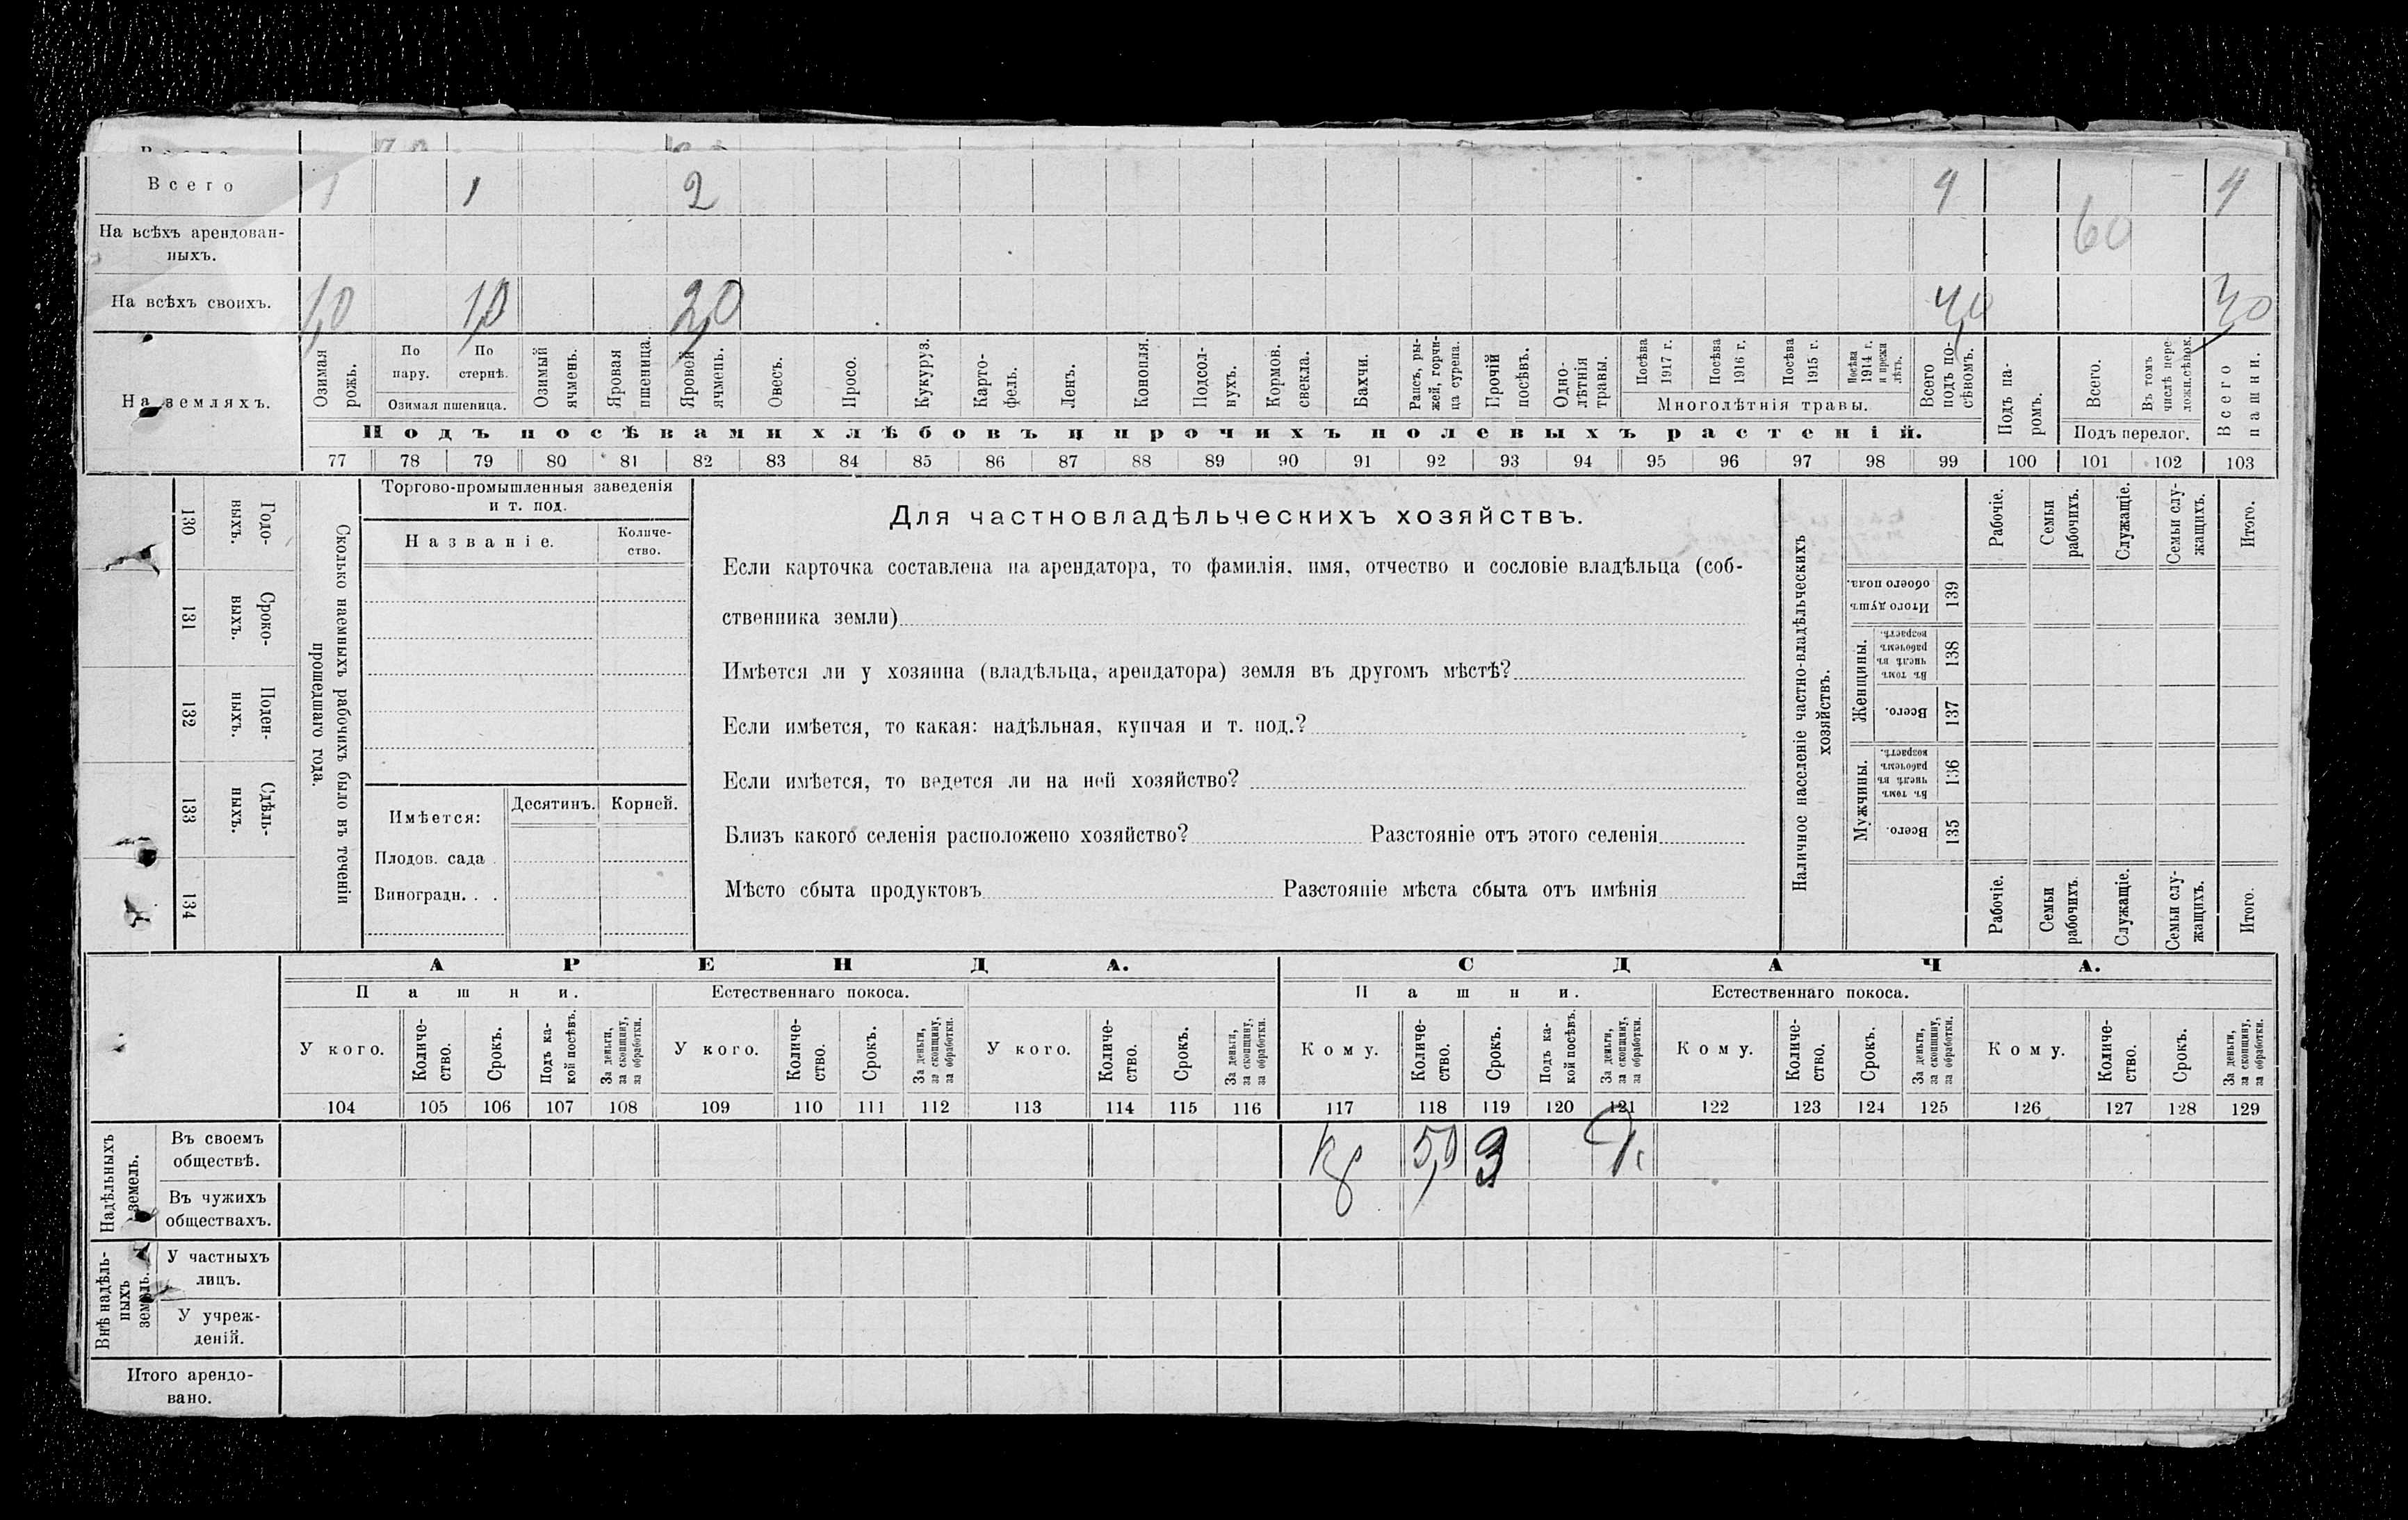 Всего 1 1 2 4 4
На всѣхъ арендован-
ныхъ. 60
На всѣхъ своихъ. 1,0 1,0 2,0 4,0
На земляхъ.
Озимая рожь.
По пару.
По стернѣ.
Озимая пшеница.
Озимый ячмень.
Яровая пшеница.
Яровей ячмень.
Овесъ.
Просо.
Кукуруз.
Карто-
фель.
Ленъ.
Конопля.
Подсол-
нухъ.
Кормов. свекла.
Бахчи.
Рапсъ, ры-
жей, горчи-
ца сурепа.
Прочій посѣвъ.
Одно-
лѣтнія травы.
Посѣва 1917 г.
Посѣва 1916 г.
Посѣва 1915 г.
Посѣва 1914 г. и прежн лѣтъ.
Многолѣтнія травы.
Всего подъ по-
сѣвомъ.
Подъ па-
ромъ.
Всего.
Въ томъ числѣ пере-
ложн.сѣнок.
Подъ перелог.
Всего пашни.
Подъ посѣвами хлѣбовъ и прочихъ полевыхъ растеній.
77 78 79 80 81 82 83 84 85 86 87 88 89 90 91 92 93 94 95 96 97 98 99 100 101 102 103
Годо-
выхъ.
130
Сроко-
выхъ.
131
Поден-
ныхъ.
132
Сдѣль-
ныхъ.
133
134
Сколько наемныхъ рабочихъ было въ теченіи
прошедшаго года.
Торгово-промышленныя заведенія
и т. под.
Названіе.
Количе-
ство.
Имѣется:
Десятинъ.
Корней.
Плодов. сада .
Виноградн. . .
Для частновладѣльческихъ хозяйствъ.
Если карточка составлена на арендатора, то фамилія, имя, отчество и сословіе владѣльца (соб-
ственника земли)
Имѣется ли у хозяина (владѣльца, арендатора) земля въ другомъ мѣстѣ?
Если имѣется, то какая: надѣльная, купчая и т. под.?
Если имѣется, то ведется ли на ней хозяйство?
Близъ какого селенія расположено хозяйство? Разстояніе отъ этого селенія
Мѣсто сбыта продуктовъ Разстояніе мѣста сбыта отъ имѣнія
Наличное населеніе частно-владѣльческихъ
хозяйствъ.
Рабочіе.
Семьи рабочихъ.
Служащіе.
Семьи слу-
жащихъ.
Итого.
Итого душъ обоего пола.
139
Женщины.
Въ томъ числѣ въ рабочемъ возрастѣ.
138
Всего.
137
Мужчины.
Въ томъ числѣ въ рабочемъ возрастѣ.
136
Всего.
135
Рабочіе.
Семьи рабочихъ.
Служащіе.
Семьи слу-
жащихъ.
Итого.
АРЕНДА.
СДАЧА.
Пашни.
Естественнаго покоса.
Пашни.
Естественнаго покоса.
У кого.
Количе-
ство.
Срокъ.
Подъ ка-
кой посѣвъ.
За деньги, за скопщину, за обработки.
У кого.
Количе-
ство.
Срокъ.
За деньги, за скопщину, за обработки.
У кого.
Количе-
ство.
Срокъ.
За деньги, за скопщину, за обработки.
Кому.
Количе-
ство.
Срокъ.
Подъ ка-
кой посѣвъ.
За деньги, за скопщину, за обработки.
Кому.
Количе-
ство.
Срокъ.
За деньги, за скопщину, за обработки.
Кому.
Количе-
ство.
Срокъ.
За деньги, за скопщину, за обработки.
104 105 106 107 108 109 110 111 112 113 114 115 116 117 118 119 120 121 122 123 124 125 126 127 128 129
Надѣльныхъ земель.
Въ своемъ
обществѣ. 5,0 3
Въ чужихъ
обществахъ.
Внѣ надѣль-
ныхъ
земель.
У частныхъ
лицъ.
У учреж-
деній.
Итого арендо-
вано.